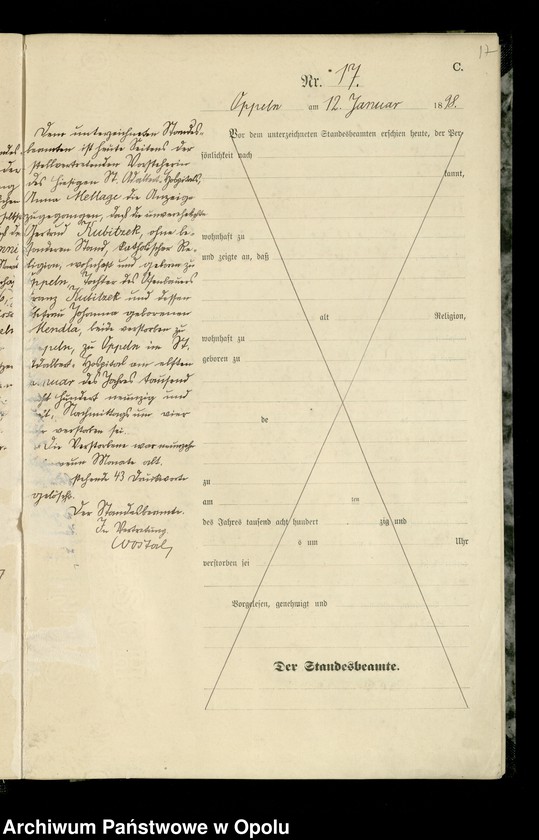 17
C.
Nr. 17.
Oppeln am 12. Januar 1898.
Dem unterzeichneten Standes-
beamten ist heute Seitens der
stellvertretenden Vorsteherin
des hiesigen St. Adalbert-Hospitals,
Anna Mellage die Anzeige
zugegangen, daß die unverehelichte
Gertrud Kubitzek, ohne be-
sonderen Stand, katholischer Re-
ligion, wohnhaft und geboren zu
Oppeln, Tochter des
Franz Kubitzek und dessen
Ehefrau Johanna geborenen
Mendla, beide verstorben zu
Oppeln, zu Oppeln im St.
Adalbert-Hospital am elften
Januar des Jahres tausend
acht hundert neunzig und
acht, Nachmittags um vier
Uhr verstorben sei.
Die Verstorbene war neunzehn
neun Monate alt.
stehende 43 Druckworte
gelöscht.
Der Standesbeamte.
In Vertretung
Wostal
Vor dem unterzeichneten Standesbeamten erschien heute, der Per-
sönlichkeit nach
kannt,
wohnhaft zu
und zeigte an, daß
alt Religion,
wohnhaft zu
geboren zu
de
zu
am ten
des Jahres tausend acht hundert zig und
s um Uhr
verstorben sei
Vorgelesen, genehmigt und
Der Standesbeamte.
Archiwum Państwowe w Opolu